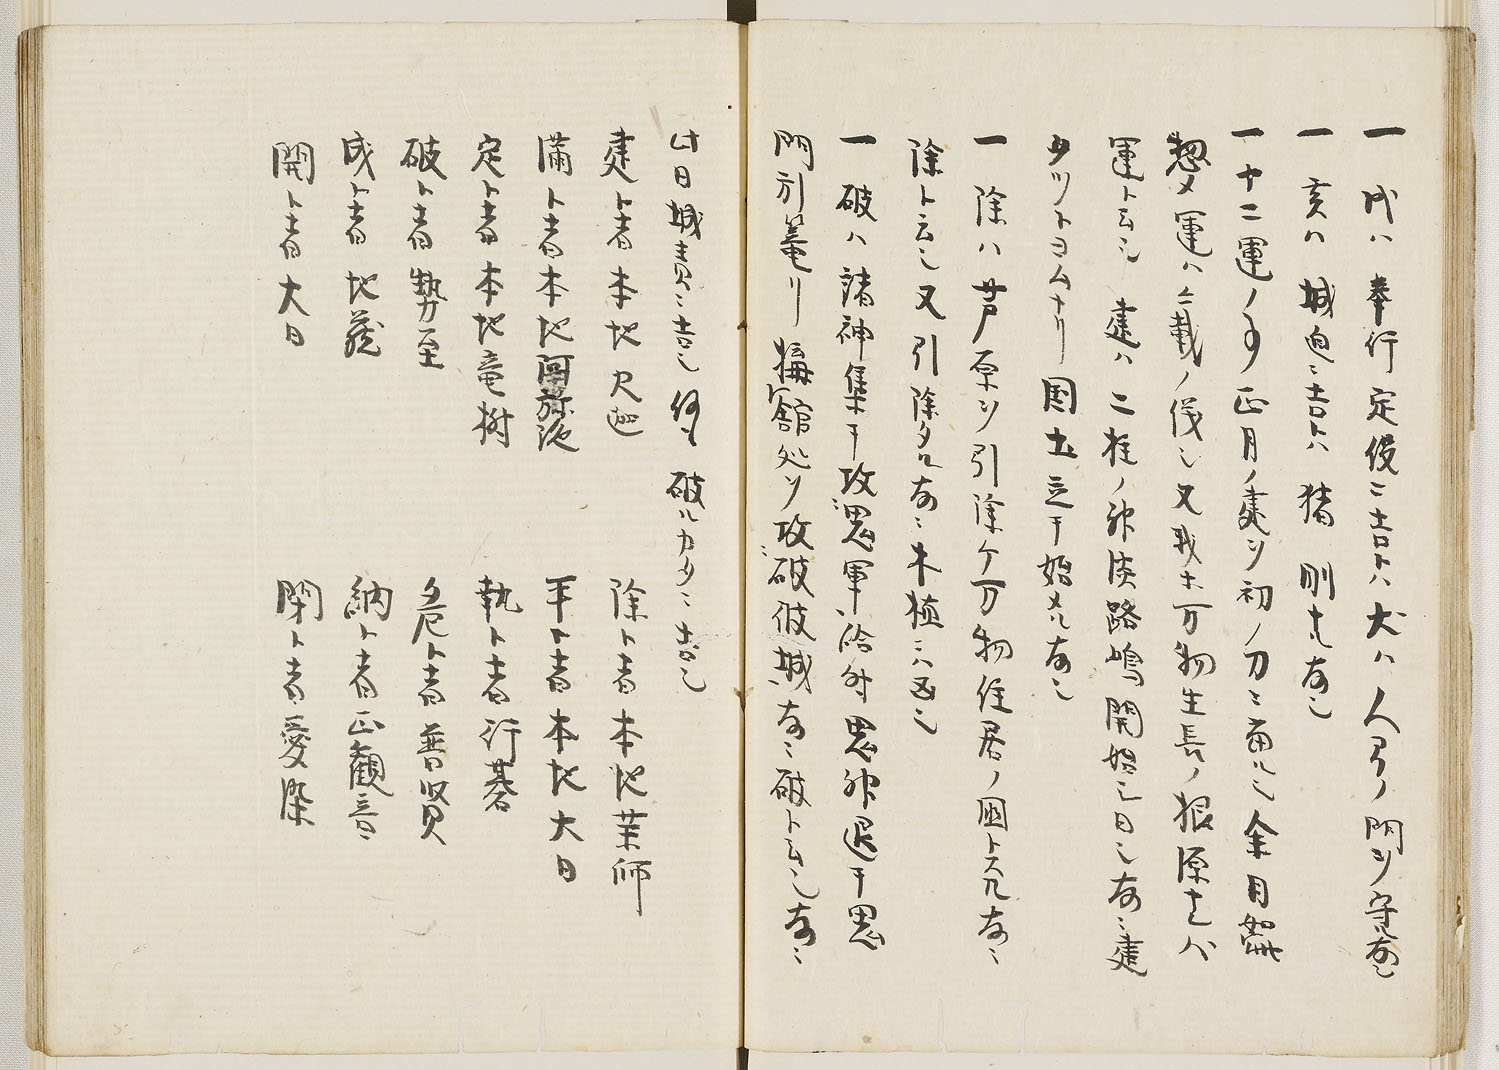 一 戌ハ 奉行定役ニ吉トハ犬ハ人家ノ門ヲ守ル故也
一 亥ハ 城廻ニ吉トハ猪 剛ナル故也
一 十二運ノ事 正月ノ建ヲ初ノ刀ニ当ル也 余月如此
惣〆運ハ 載ノ儀也 又我等万物生長ノ根源ナレハ
運ト云也 建ハ 二柱ノ神淡路嶋開始之日也 故ニ建
タツトヨムナリ 国土立テ始メル故也
一 除ハ 芦原ヲ引除ケ万物住居ノ國ト定ル故ニ
除ト云也 又引除タル故ニ木植ニハ凶也
一 破ハ 諸神集テ攻悪軍給時 悪神退テ悪
門引篭リ 構館処ヲ攻破彼城故ニ破ト云也 故ニ
此日城責ニ吉也 何モ 破ルカタニ吉也
建ト者 本地尺迦 除ト者 本地薬師
満ト者 本地阿弥陀 平ト者 本地大日
定ト者 本地竜樹 執ト者 行基
破ト者 勢至 危ト者 普賢
成ト者 地蔵 納ト者 正観音
開ト者 大日 閉ト者 愛染